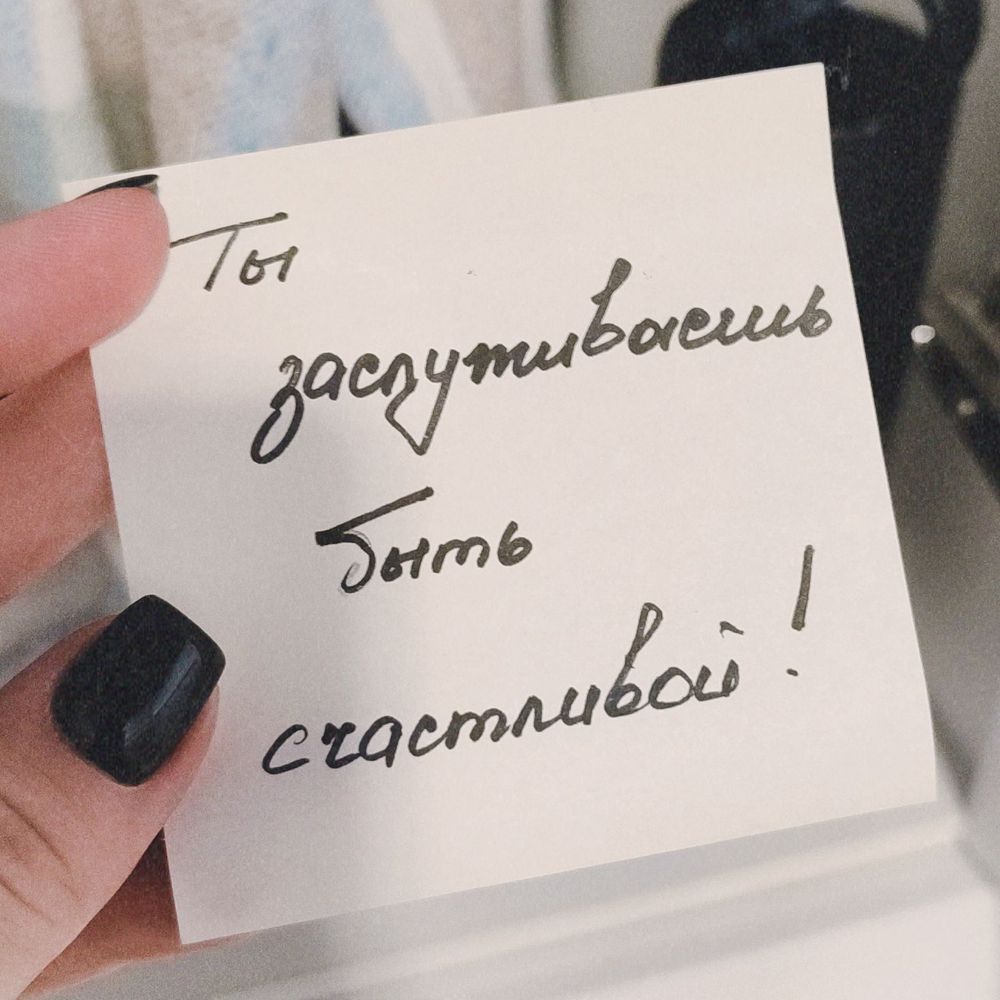 Ты
заслуживаешь
быть
счастливой!